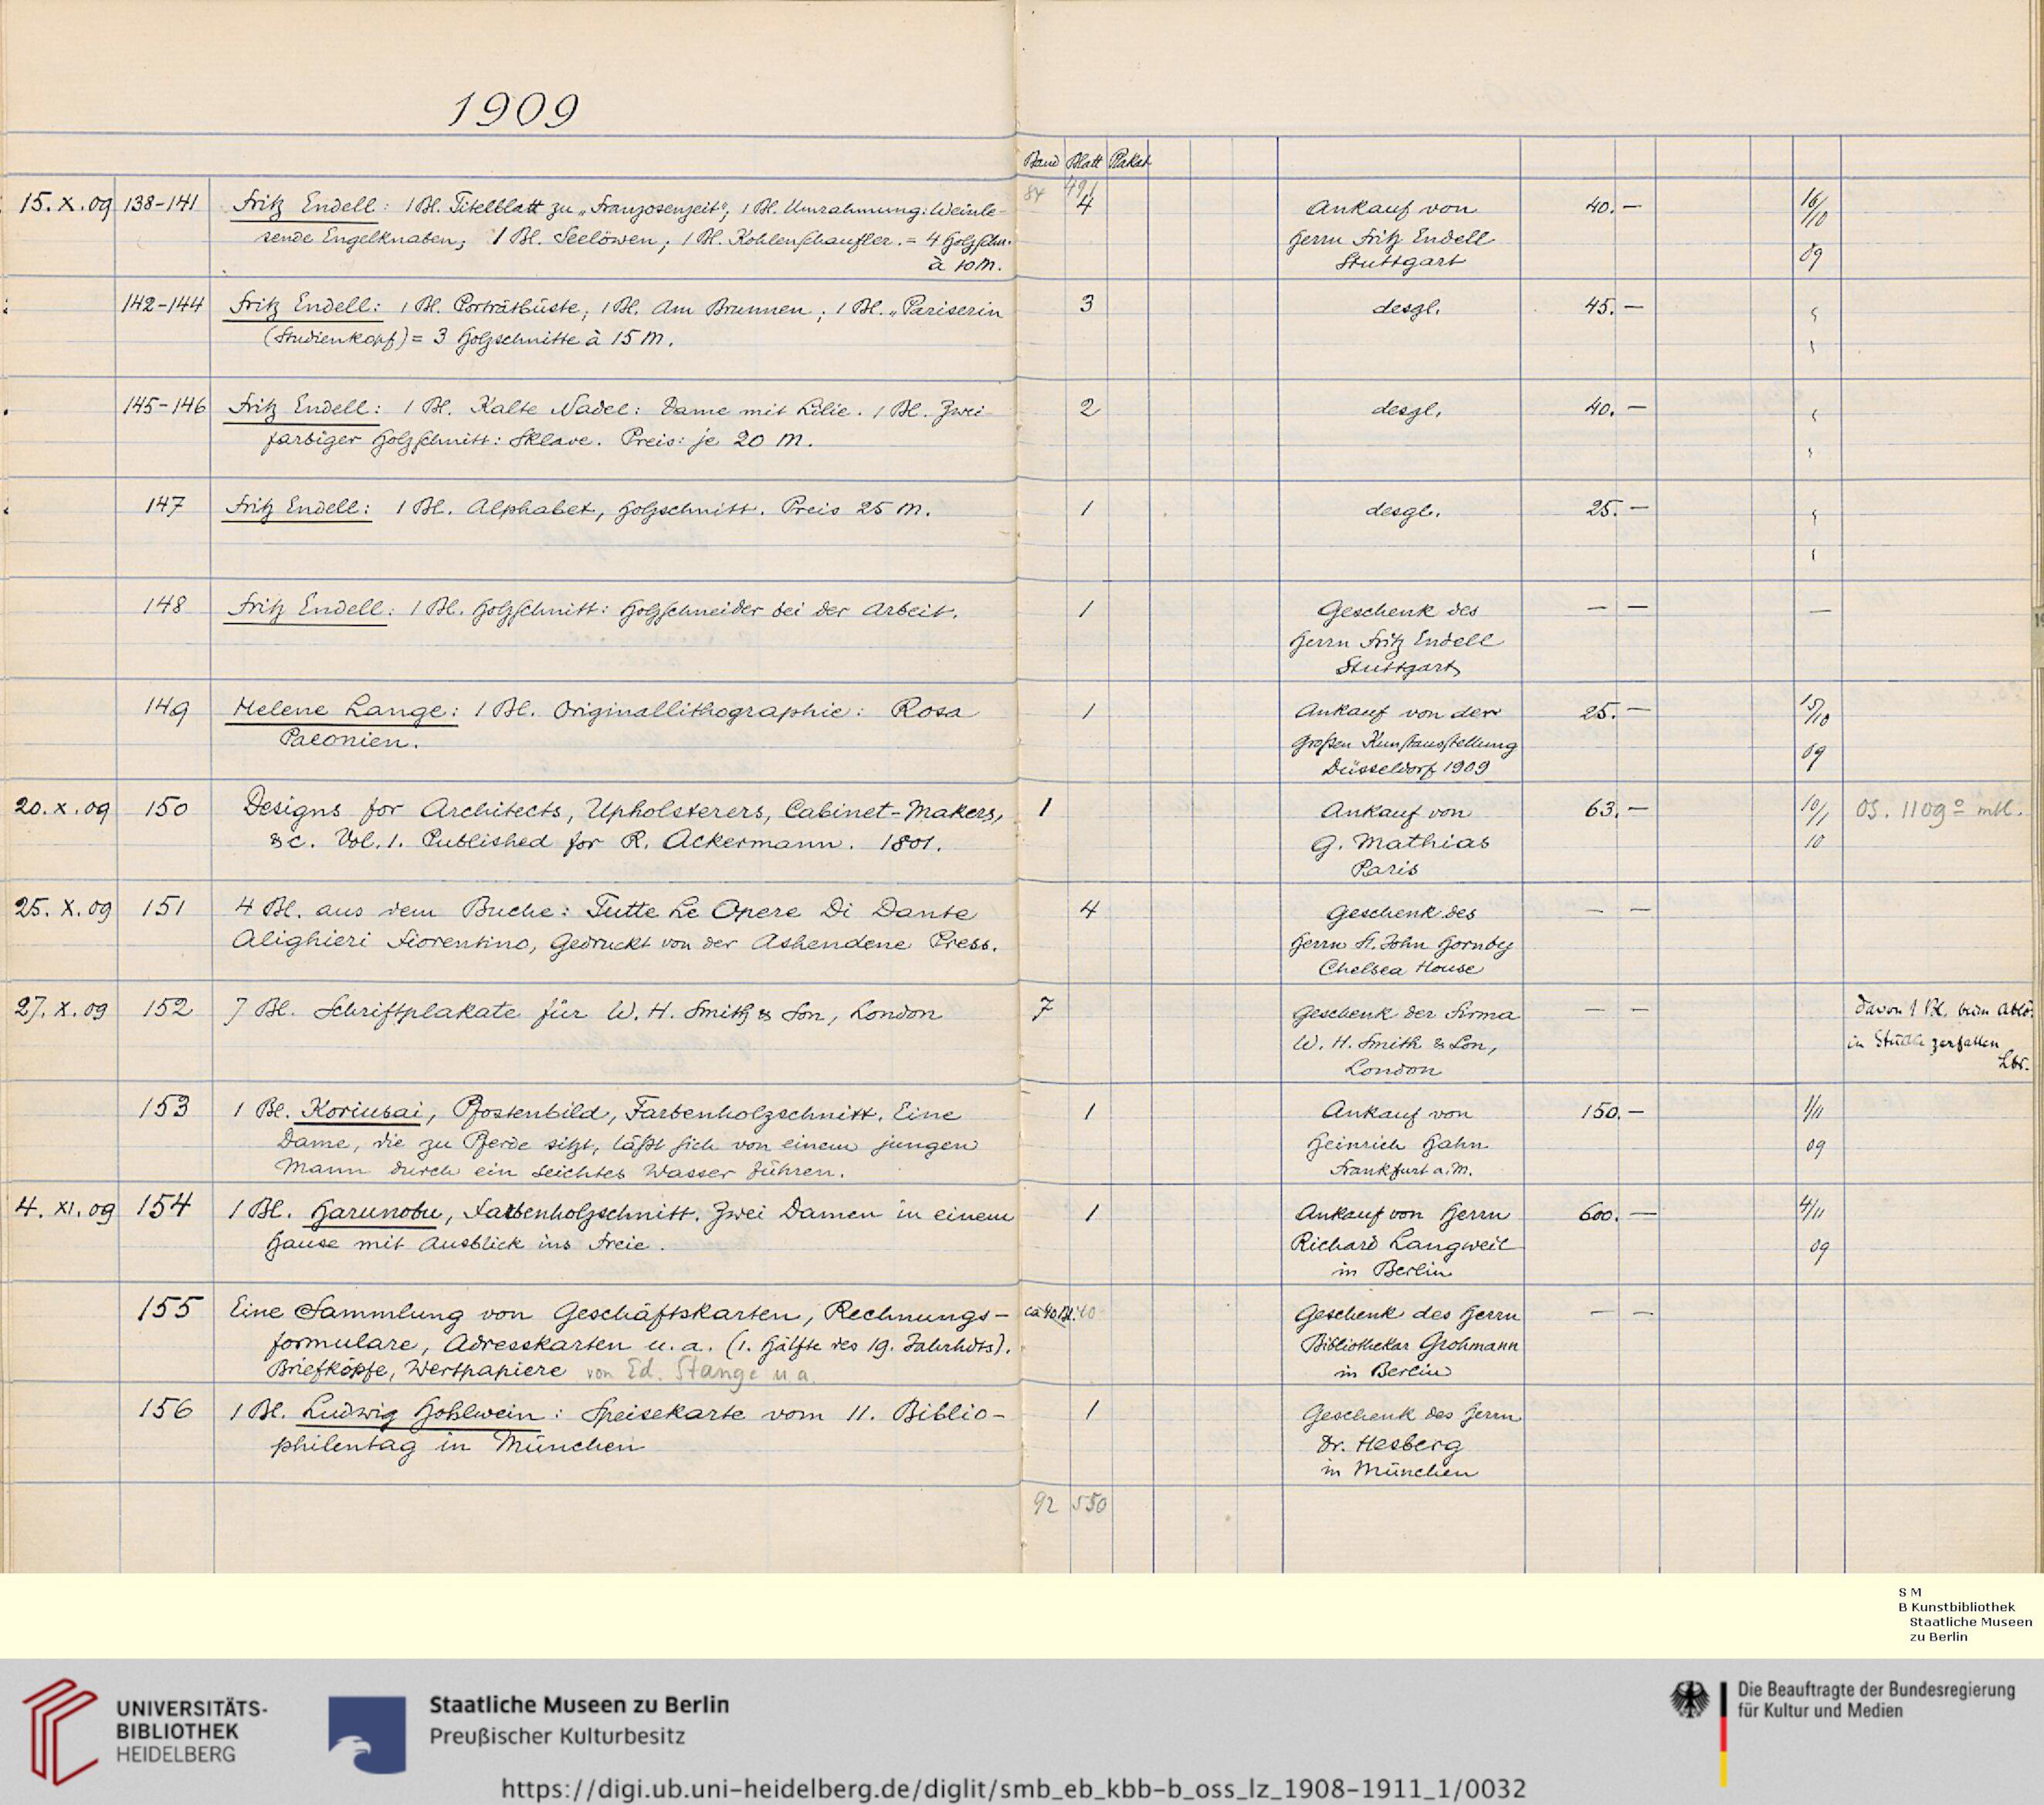 1909
Band Blatt Plakat
84 491
15.X.09 138-141 Fritz Endell: 1 Bl. Titelblatt zu „Franzosenzeit“; 1 Bl. Umrahmung: Weinle- 4 Ankauf von 40.— 16/10
sende Engelknaben; 1 Bl. Seelöwen; 1 Bl. Kohlenschaufler. = 4 Holzschn. Herrn Fritz Endell 09
à 10 M. Stuttgart
142-144 Fritz Endell: 1 Bl. Porträtbüste; 1 Bl. Am Brunnen; 1 Bl. „Pariserin 3 desgl. 45.—
(Studienkopf) = 3 Holzschnitte à 15 M.
145-146 Fritz Endell: 1 Bl. Kalte Nadel: Dame mit Lilie. 1 Bl. Zwei 2 desgl. 40.—
farbiger Holzschnitt: Sklave. Preis: je 20 M.
147 Fritz Endell: 1 Bl. Alphabet, Holzschnitt. Preis 25 M. 1 desgl. 25.—
148 Fritz Endell: 1 Bl. Holzschnitt: Holzschneider bei der Arbeit. 1 Geschenk des — — —
Herrn Fritz Endell
Stuttgart
149 Helene Lange: 1 Bl. Originallithographie: Rosa 1 Ankauf von der 25.— 15/10
Paeonien. Großen Kunstausstellung 09
Düsseldorf 1909
20.X.09 150 Designs for Architects, Upholsterers, Cabinet-Makers, 1 Ankauf von 63.— 10/1 OS. 1109º mtl.
&c. Vol. 1. Published for R. Ackermann. 1801. G. Mathias 10
Paris
25.X.09 151 4 Bl. aus dem Buche: Tutte Le Opere Di Dante 4 Geschenk des — —
Alighieri Fiorentino, Gedruckt von der Ashendene Press. Herrn St. John Hornby
Chelsea House
27.X.09 152 7 Bl. Schriftplakate für W. H. Smith & Son, London 7 Geschenk der Firma — — Davon 1 Bl. beim Ablö.
W. H. Smith & Son, in Stücke zerfallen
London Lbr.
153 1 Bl. Koriusai, Pfostenbild, Farbenholzschnitt. Eine 1 Ankauf von 150.— 1/11
Dame, die zu Pferde sitzt, läßt sich von einem jungen Heinrich Hahn 09
Mann durch ein seichtes Wasser führen. Frankfurt a. M.
4.XI.09 154 1 Bl. Harunobu, Farbenholzschnitt. Zwei Damen in einem 1 Ankauf von Herrn 600.— 4/11
Hause mit Ausblick ins Freie. Richard Langweil 09
in Berlin
155 Eine Sammlung von Geschäftskarten, Rechnungs- ca 40 Bl. 40 Geschenk des Herrn — —
formulare, Adresskarten u. a. (1. Hälfte des 19. Jahrhdts). Bibliothekar Grohmann
Briefköpfe, Wertpapiere von Ed. Stange u a. in Berlin
156 1 Bl. Ludwig Hohlwein: Speisekarte vom 11. Biblio- 1 Geschenk des Herrn
philentag in München Dr. Hesberg
in München
92 550
S M
B Kunstbibliothek
Staatliche Museen
zu Berlin
UNIVERSITÄTS-
BIBLIOTHEK
HEIDELBERG
Staatliche Museen zu Berlin
Preußischer Kulturbesitz
Die Beauftragte der Bundesregierung
für Kultur und Medien
https://digi.ub.uni-heidelberg.de/diglit/smb_eb_kbb-b_oss_lz_1908-1911_1/0032